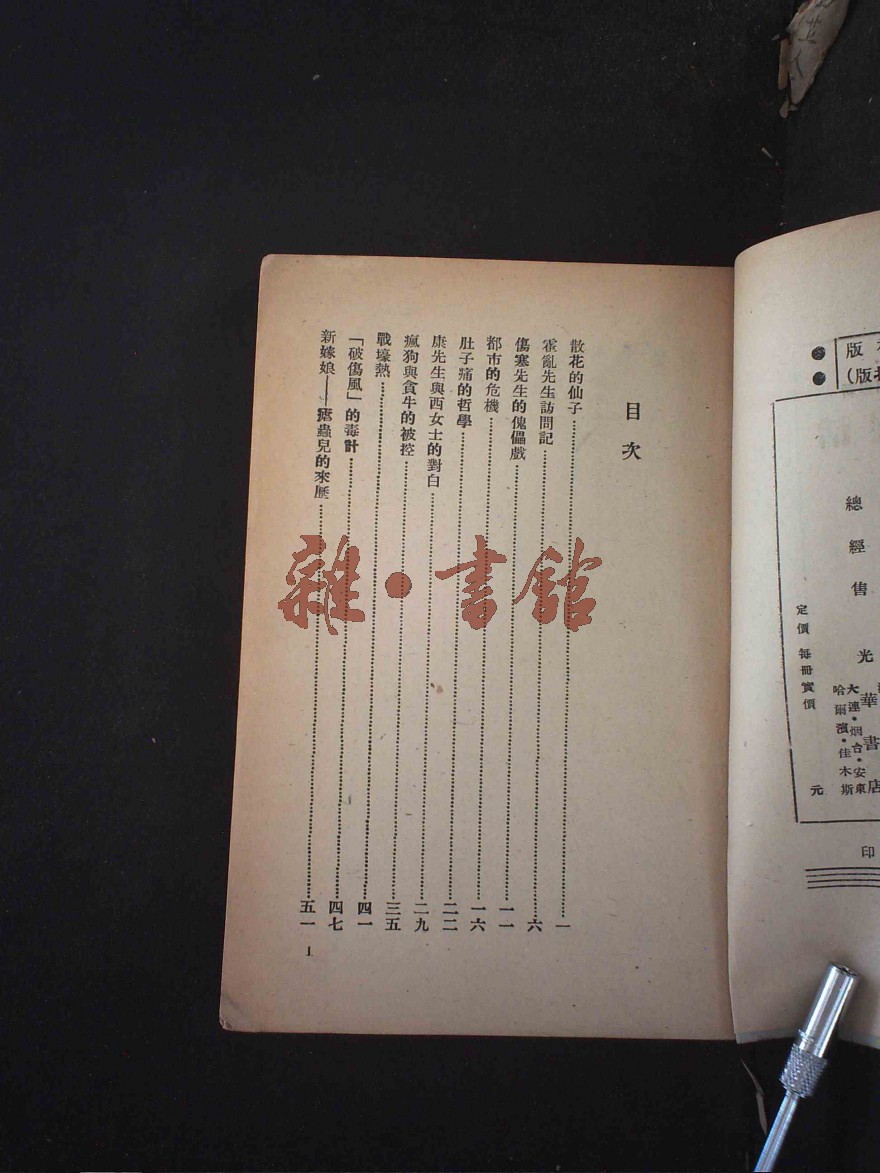 目次
散花的仙子……一
霍亂先生訪問記……六
傷寒先生的傀儡戲……一一
都市的危機……一六
肚子痛的哲學……二二
康先生與西女士的對白……二九
瘋狗與貪牛的被控……三五
戰壕熱……四一
「破傷風」的毒計……四七
新嫁娘——瘧蟲兒的來歷……五一
1
雜·書館
版
(版
總經售
光華書店
大連·烟台·安東
哈爾濱·佳木斯
定價 每冊實價 元
印